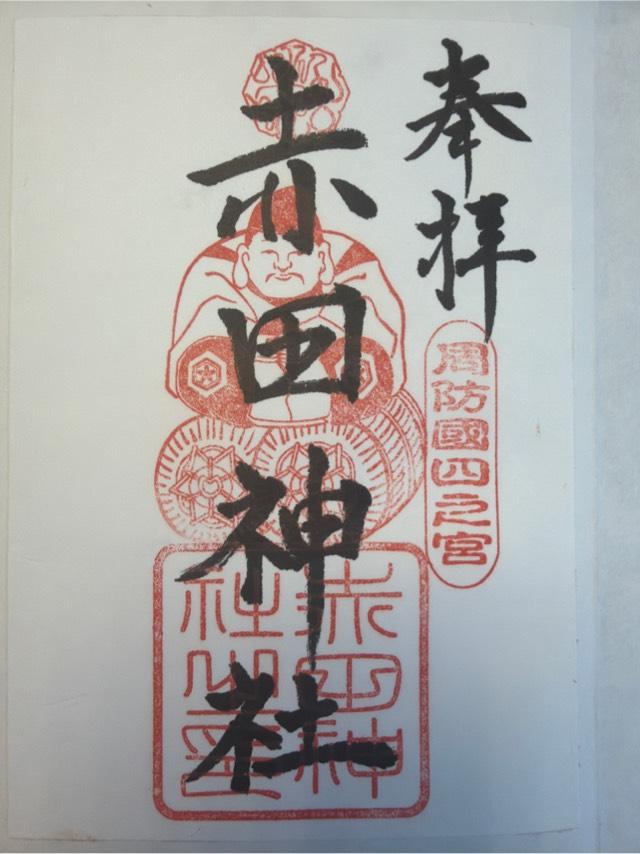 奉拝
周防國四之宮
赤田神社
赤田神
社之璽